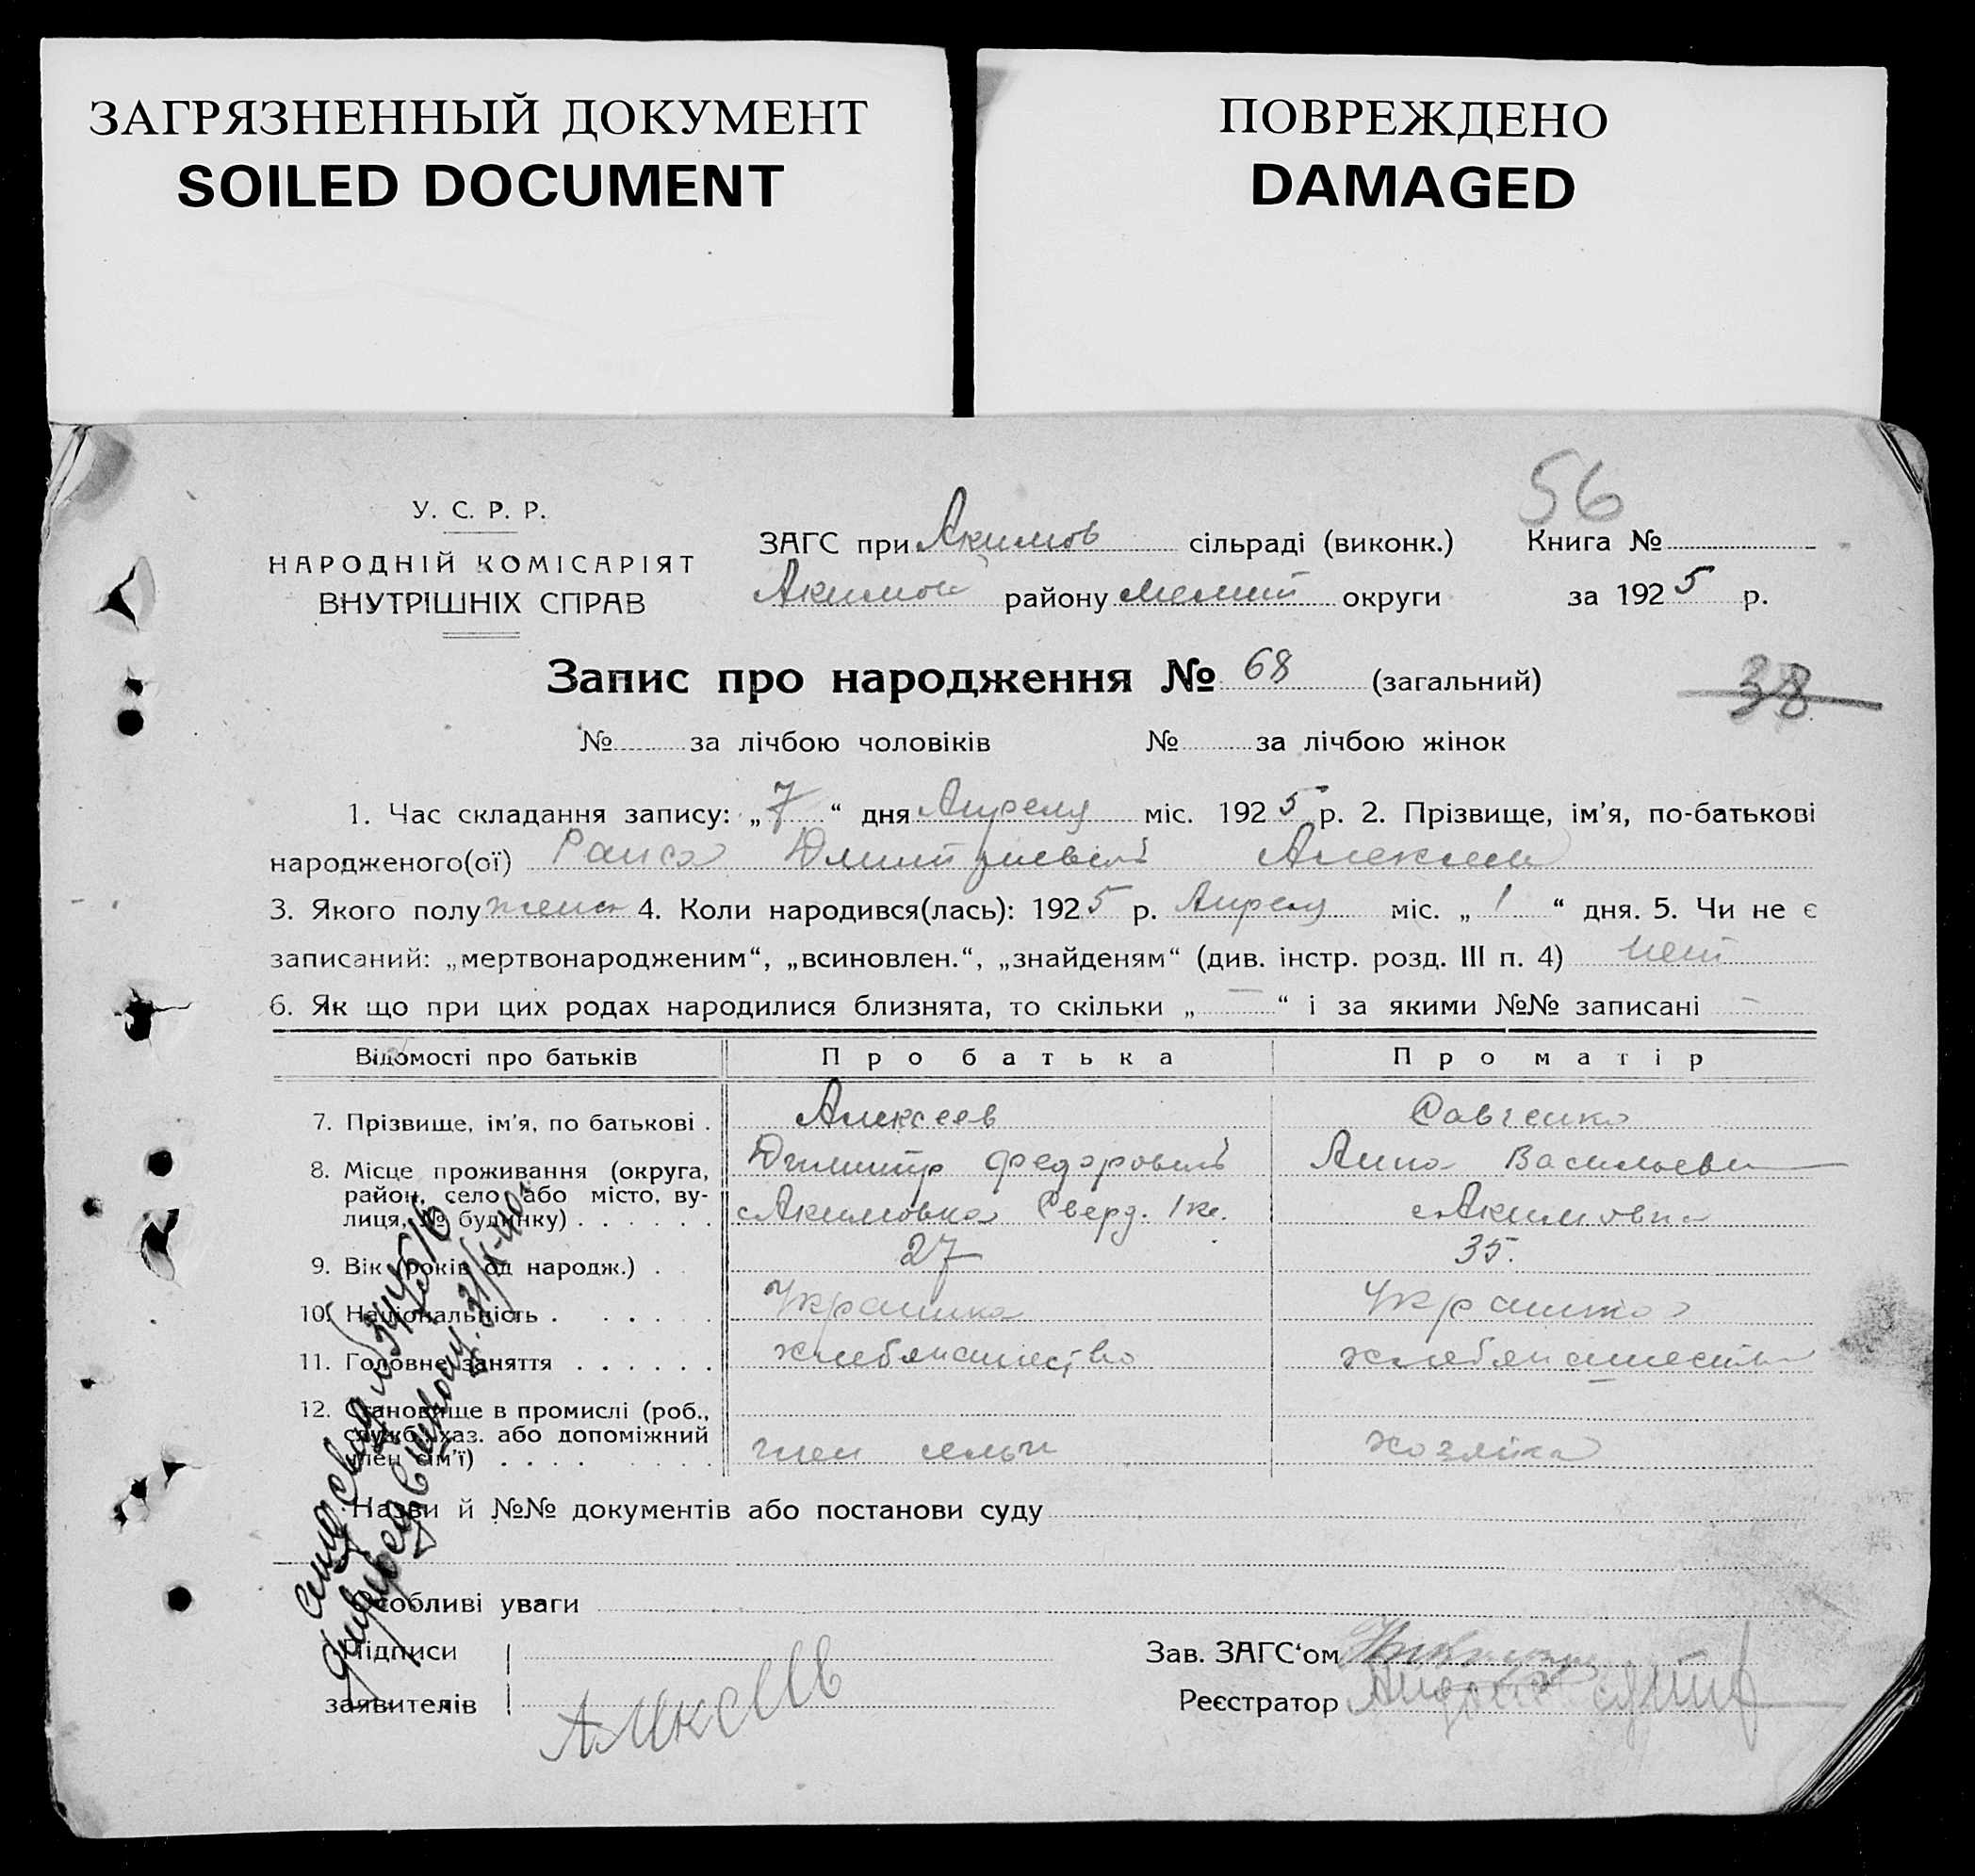 ЗАГРЯЗНЕННЫЙ ДОКУМЕНТ
SOILED DOCUMENT
ПОВРЕЖДЕНО
DAMAGED
56
У. С. Р. Р.
НАРОДНІЙ КОМІСАРІЯТ
ВНУТРІШНІХ СПРАВ
ЗАГС при Акимов сільраді (виконк.) Книга №
Акимов району Мелит округи за 1925 р.
Запис про народження № 68 (загальний)
38
№ за лічбою чоловіків № за лічбою жінок
1. Час складання запису: „7“ дня Апреля міс. 1925 р. 2. Прізвище, ім'я, по-батькові
народженого(ої) Раиса Алексеев
3. Якого полу жено 4. Коли народився(лась): 1925 р. Апреля міс. „1“ дня. 5. Чи не є
записаний: „мертвонародженим“, „всиновлен.“, „знайденям“ (див. інстр. розд. III п. 4) нет
6. Як що при цих родах народилися близнята, то скільки „—“ і за якими №№ записані —
Відомості про батьків Про батька Про матір
7. Прізвище, ім'я, по батькові . Алексеев Савченко
Димитр Федорович Анна Васильевн
8. Місце проживання (округа, район, село або місто, вулиця, № будинку) . . . . . . с Акимовка Сверд. 1 кв. с Акимовка
9. Вік (років од народж.) . 27 35.
10. Національність . . . . . Украинка
11. Головне заняття . . . . . . хлебопашество хлебопашество
12. Становище в промислі (роб., служб., хаз. або допоміжний член сім'ї) . . . . член семьи хозяйка
Назви й №№ документів або постанови суду
Особливі уваги
Підписи
заявителів Алексеев
Зав. ЗАГС'ом
Реєстратор